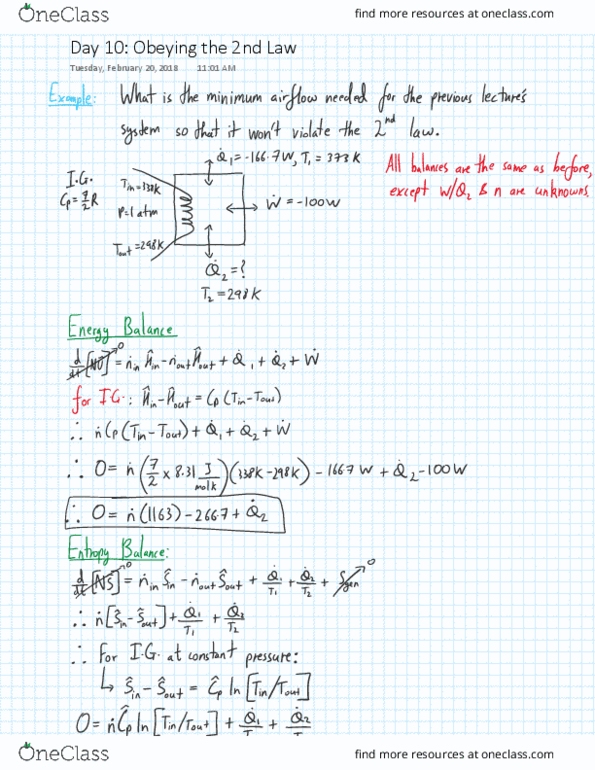 OneClass
find more resources at oneclass.com
Day 10: Obeying the 2nd Law
Tuesday, February 20, 2018 11:01 AM
Example: What is the minimum airflow needed for the previous lecture's
system so that it won't violate the 2nd law.
Q̇₁=-166.7W, T₁=373K
All balances are the same as before,
except w/Q̇₂ & ṅ are unknowns.
I.G.
Cp=7/2R
Tin=338K
P=1 atm
Tout=298K
Ẇ=-100W
Q̇₂=?
T₂=298K
Energy Balance
d/dt[NU]→0 = ṅin Ĥin - ṅout Ĥout + Q̇₁ + Q̇₂ + Ẇ
for I.G.: Ĥin - Ĥout = Cp(Tin-Tout)
∴ ṅCp(Tin-Tout) + Q̇₁ + Q̇₂ + Ẇ
∴ 0 = ṅ(7/2 × 8.31 J/molK)(338K-298K) - 166.7W + Q̇₂ - 100W
∴ 0 = ṅ(1163) - 266.7 + Q̇₂
Entropy Balance:
d/dt[NS]→0 = ṅin Ŝin - ṅout Ŝout + Q̇₁/T₁ + Q̇₂/T₂ + Ṡgen→0
∴ ṅ[Ŝin-Ŝout] + Q̇₁/T₁ + Q̇₂/T₂
∴ For I.G. at constant pressure:
↳ Ŝin - Ŝout = Ĉp ln[Tin/Tout]
0 = ṅĈp ln[Tin/Tout] + Q̇₁/T + Q̇₂/T
OneClass
find more resources at oneclass.com